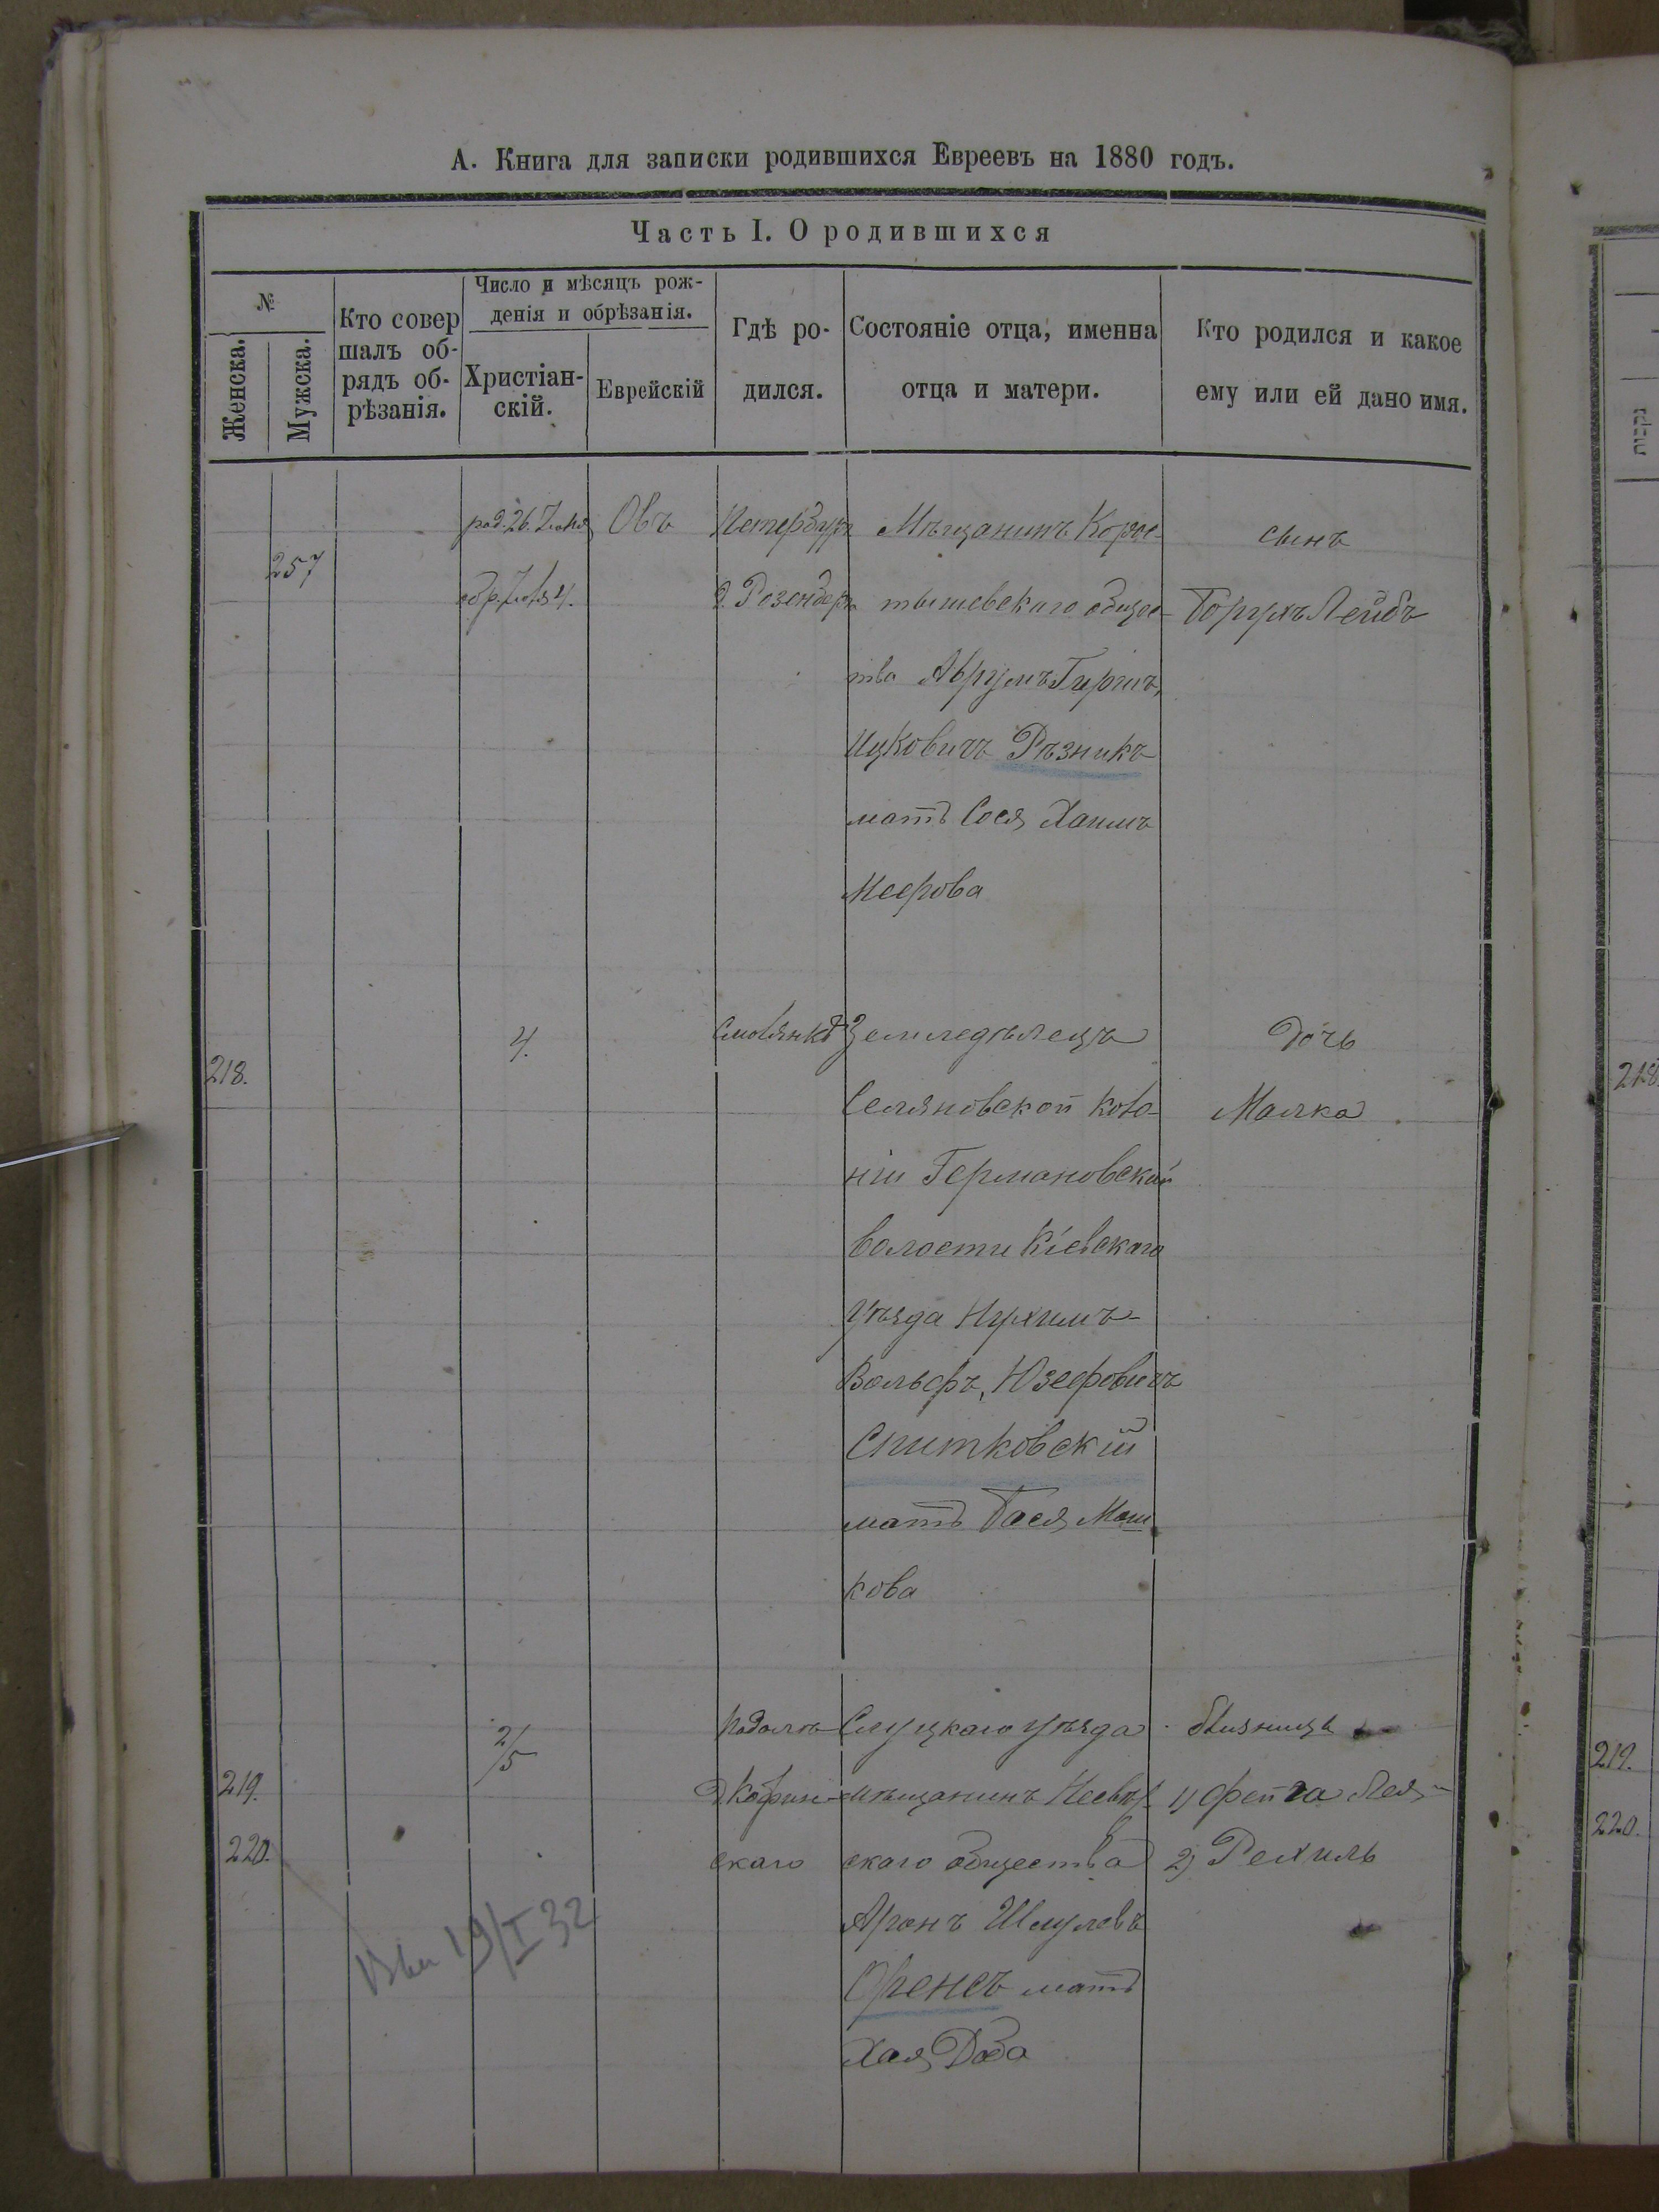 А. Книга для записки родившихся Евреевъ на 1880 годъ.
Часть I. О родившихся
№
Женска.
Мужска.
Кто совер
шалъ об-
рядъ об-
рѣзанія.
Число и мѣсяцъ рож-
денія и обрѣзанія.
Христіан-
скій.
Еврейскій
Гдѣ ро-
дился.
Состояніе отца, именна
отца и матери.
Кто родился и какое
ему или ей дано имя.
257
род. 26. Іюня
обр. Іюля 4.
Овъ
Петербург
д. Розенберг
Мѣщанинъ Корос-
тышевскаго общес-
тва Аврумъ Гиршъ,
Ицковичъ Рѣзникъ
мать Сося Хаимъ
Меерова
сынъ
Борухъ Лейбъ
218.
4.
Земледѣлецъ
Селяновской коло-
ніи Германовской
волости Кіевскаго
уѣзда Нухимъ-
Вольфъ, Юзефовичъ
Спитковскій
мать Бася Мош
кова
Дочь
Малка
219.
220.
2/5
Подолъ
скаго
Слуцкаго уѣзда
мѣщанинъ
скаго общества
Аронъ Шмулевъ
Френсъ мать
Хая Доба
близнецы
1) Фейга Лея
2) Рехиль
19/I 32
נקבות
218
219.
220.